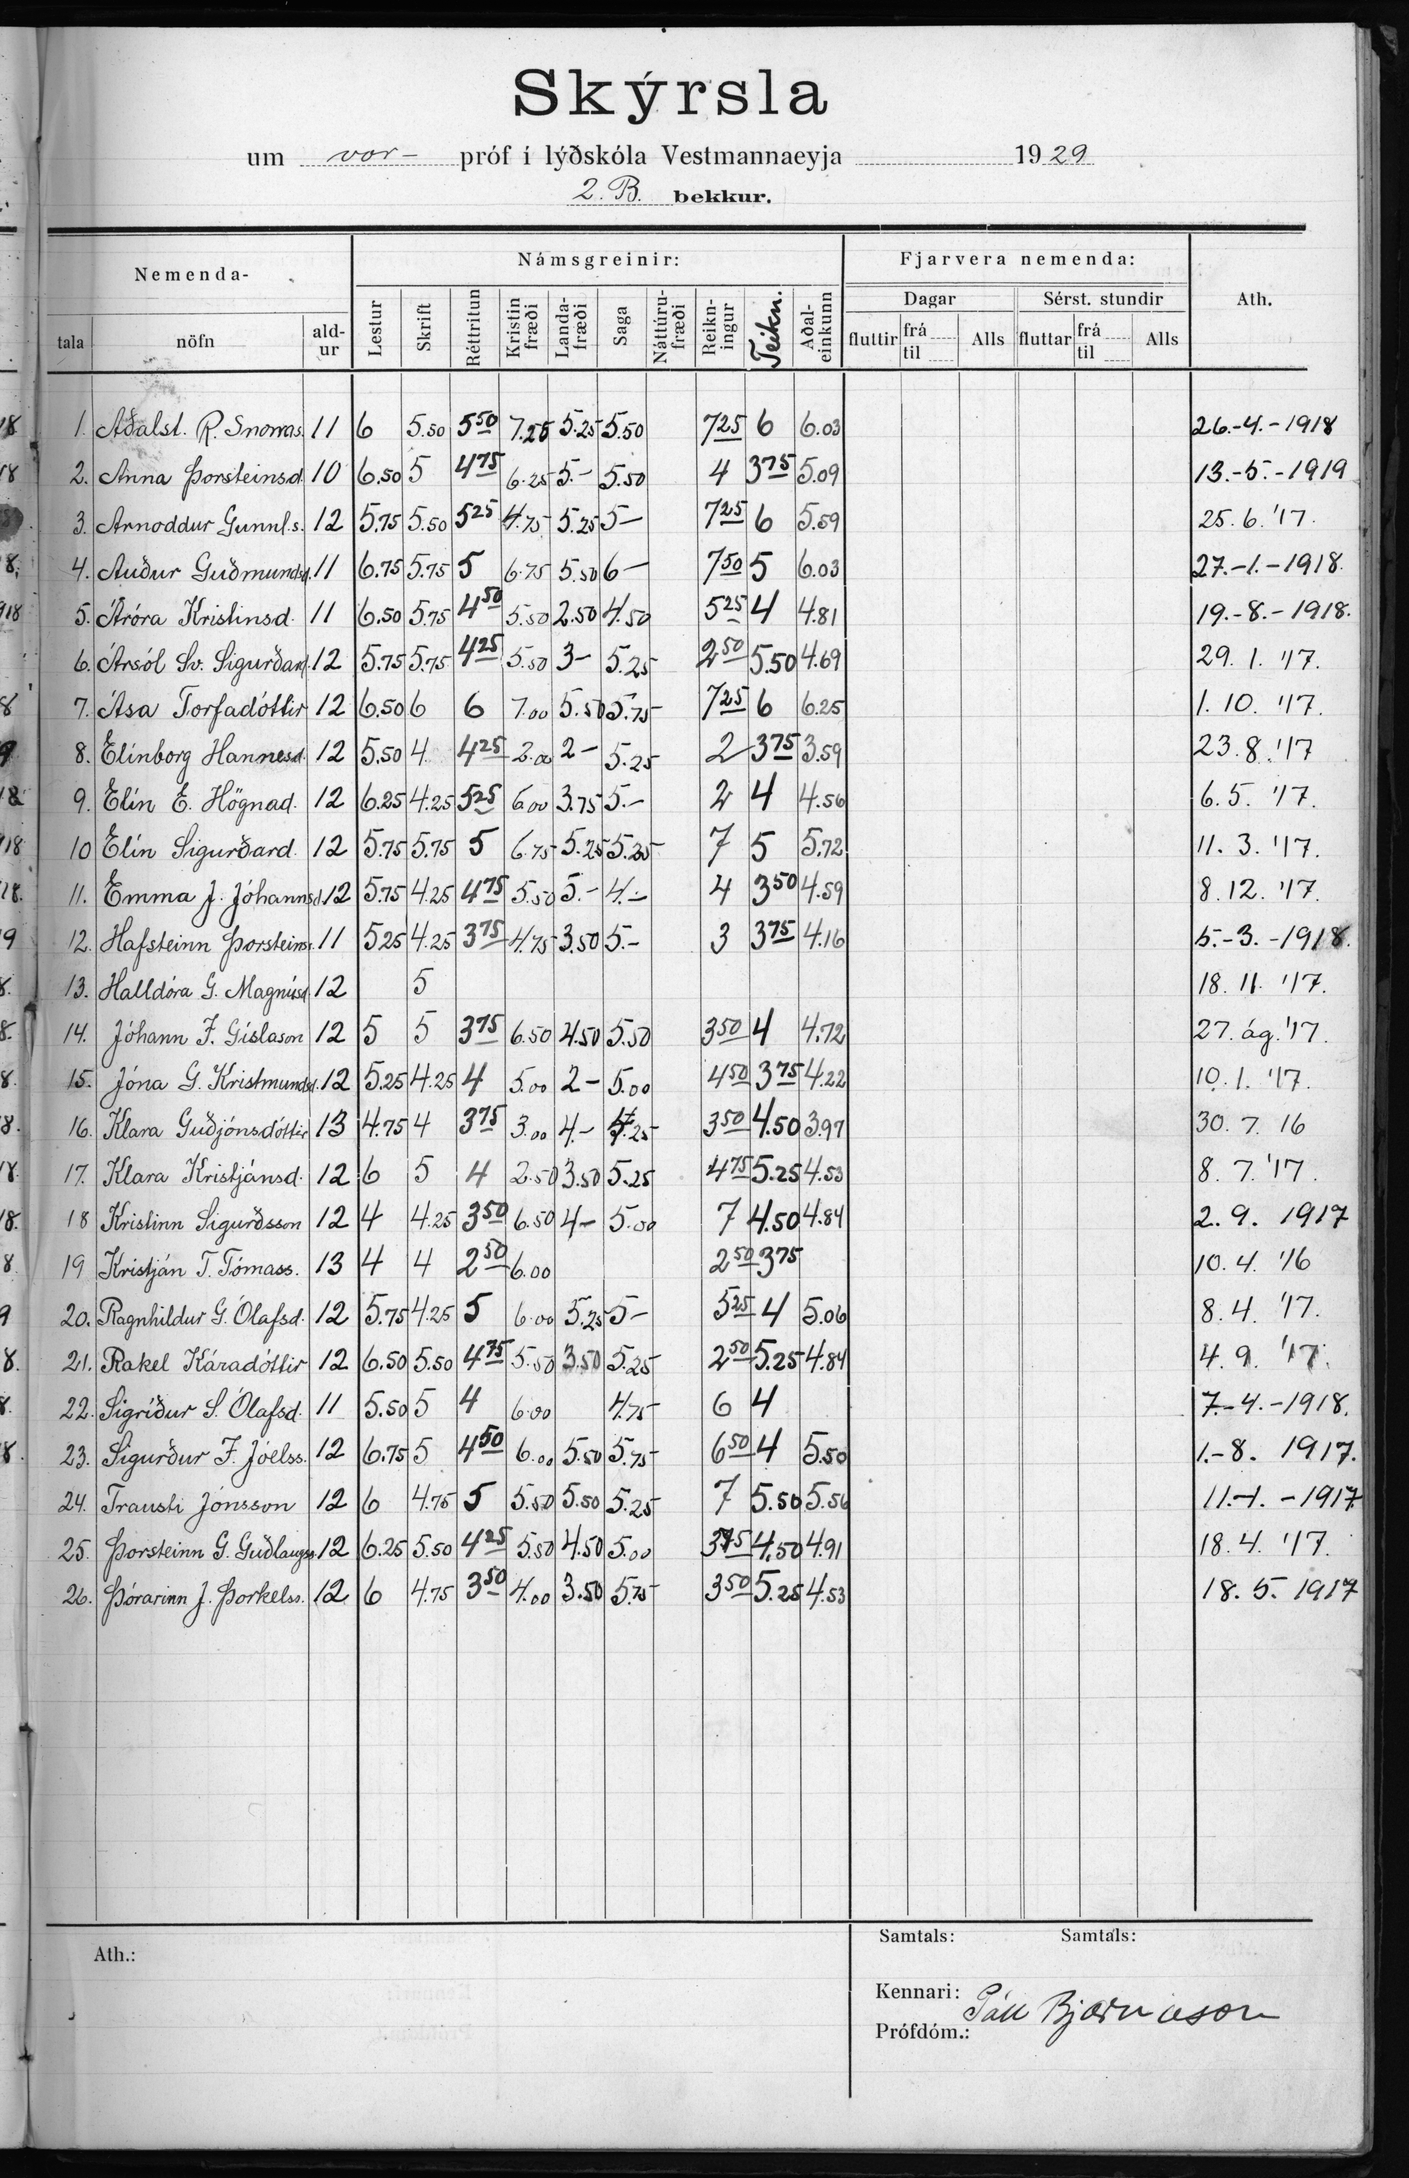 Skýrsla
um vor- próf í lýðskóla Vestmannaeyja 1929
2. B. bekkur.
Nemenda- Námsgreinir: Fjarvera nemenda: Ath.
Dagar Sérst. stundir
tala nöfn ald-ur Lestur Skrift Réttritun Kristin fræði Landa-fræði Saga Náttúru-fræði Reikn-ingur Teikn. Aðal-einkunn fluttir frá til Alls fluttar frá til Alls
1. Aðalst. R. Snorras. 11 6 5.50 5 50 7.25 5.25 5.50 7 25 6 6.03 26.-4.-1918
2. Anna Þorsteinsd. 10 6.50 5 4 75 6.25 5.- 5.50 4 3 75 5.09 13.-5.-1919
3. Arnoddur Gunnl.s. 12 5.75 5.50 5 25 4.75 5.25 5- 7 25 6 5.59 25. 6. '17.
4. Auður Guðmundsd. 11 6.75 5.75 5 6.75 5.50 6- 7 50 5 6.03 27.-1.-1918.
5. Áróra Kristinsd. 11 6.50 5.75 4 50 5.50 2.50 4.50 5 25 4 4.81 19.-8.-1918.
6. Ársól Sv. Sigurðard. 12 5.75 5.75 4 25 5.50 3- 5.25 2 50 5.50 4.69 29. 1. '17.
7. Ása Torfadóttir 12 6.50 6 6 7.00 5.50 5.75 7 25 6 6.25 1. 10. '17.
8. Elínborg Hannesd. 12 5.50 4 4 25 2.00 2- 5.25 2 3 75 3.59 23. 8. '17
9. Elín E. Högnad. 12 6.25 4.25 5 25 6.00 3.75 5.- 2 4 4.56 6. 5. '17.
10 Elín Sigurðard. 12 5.75 5.75 5 6.75 5.25 5.25 7 5 5.72 11. 3. '17.
11. Emma J. Jóhannsd. 12 5.75 4.25 4 75 5.50 5.- 4.- 4 3 50 4.59 8. 12. '17.
12. Hafsteinn Þorsteinss. 11 5 25 4.25 3 75 4.75 3.50 5.- 3 3 75 4.16 5.-3.-1918.
13. Halldóra G. Magnúsd. 12 5 18. 11. '17.
14. Jóhann F. Gíslason 12 5 5 3 75 6.50 4.50 5.50 3 50 4 4.72 27. ág. '17.
15. Jóna G. Kristmundsd. 12 5.25 4.25 4 5.00 2- 5.00 4 50 3 75 4.22 10. 1. '17.
16. Klara Guðjónsdóttir 13 4.75 4 3 75 3.00 4.- 4.25 3 50 4.50 3.97 30. 7. 16
17. Klara Kristjánsd. 12 6 5 4 2.50 3.50 5.25 4 75 5.25 4.53 8. 7. '17.
18 Kristinn Sigurðsson 12 4 4.25 3 50 6.50 4- 5.00 7 4.50 4.84 2. 9. 1917
19 Kristján T. Tómass. 13 4 4 2 50 6.00 2 50 3 75 10. 4. '16
20. Ragnhildur G. Ólafsd. 12 5.75 4.25 5 6.00 5.25 5- 5 25 4 5.06 8. 4. '17.
21. Rakel Káradóttir 12 6.50 5.50 4 75 5.50 3.50 5.25 2 50 5.25 4.84 4. 9. '17.
22. Sigríður S. Ólafsd. 11 5.50 5 4 6.00 4.75 6 4 7.-4.-1918.
23. Sigurður F. Jóelss. 12 6.75 5 4 50 6.00 5.50 5.75 6 50 4 5.50 1.-8. 1917.
24. Trausti Jónsson 12 6 4.75 5 5.50 5.50 5.25 7 5.50 5.56 11.-1.-1917
25. Þorsteinn G. Guðlaugss. 12 6.25 5.50 4 25 5.50 4.50 5.00 3 75 4.50 4.91 18. 4. '17.
26. Þórarinn J. Þorkelss. 12 6 4.75 3 50 4.00 3.50 5.75 3 50 5.25 4.53 18. 5. 1917
Samtals: Samtals:
Ath.:
Kennari: Páll Bjarnason
Prófdóm.: